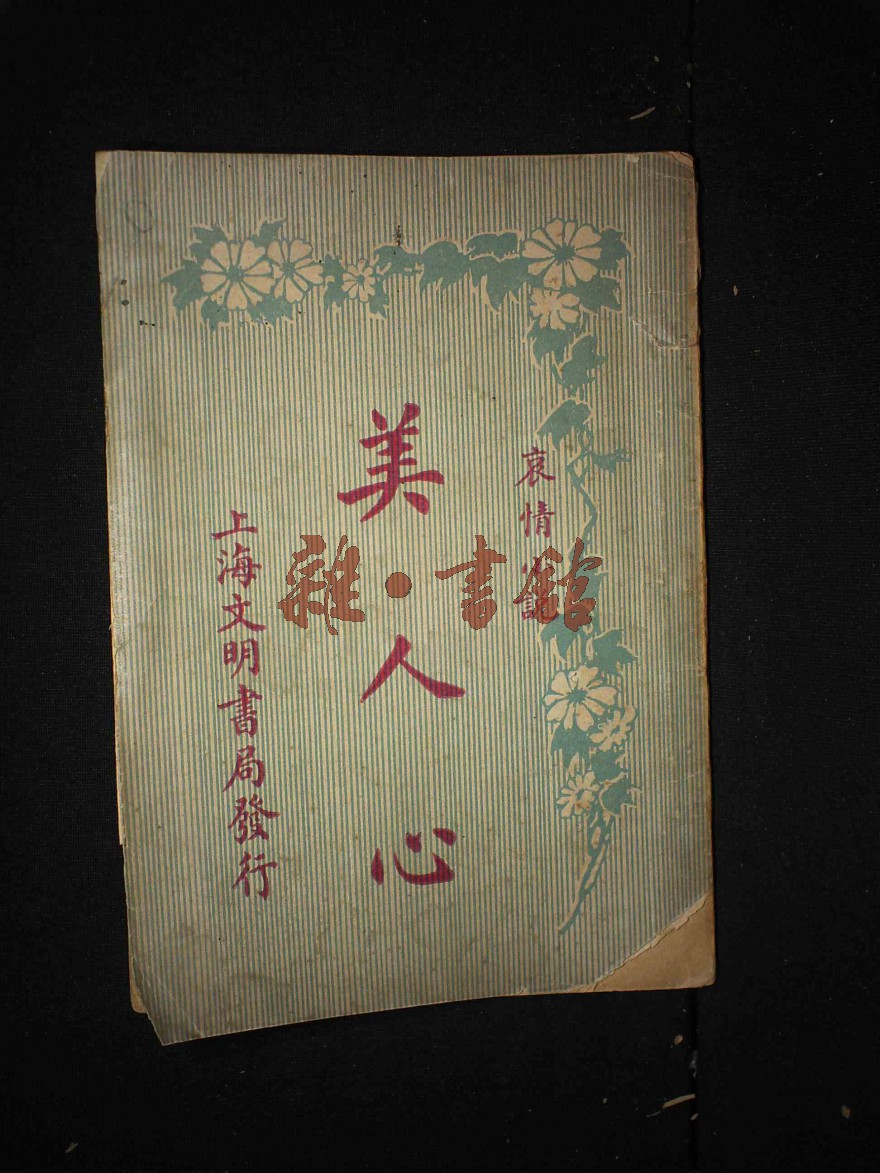 哀情小說
美人心
上海文明書局發行
雜·書館